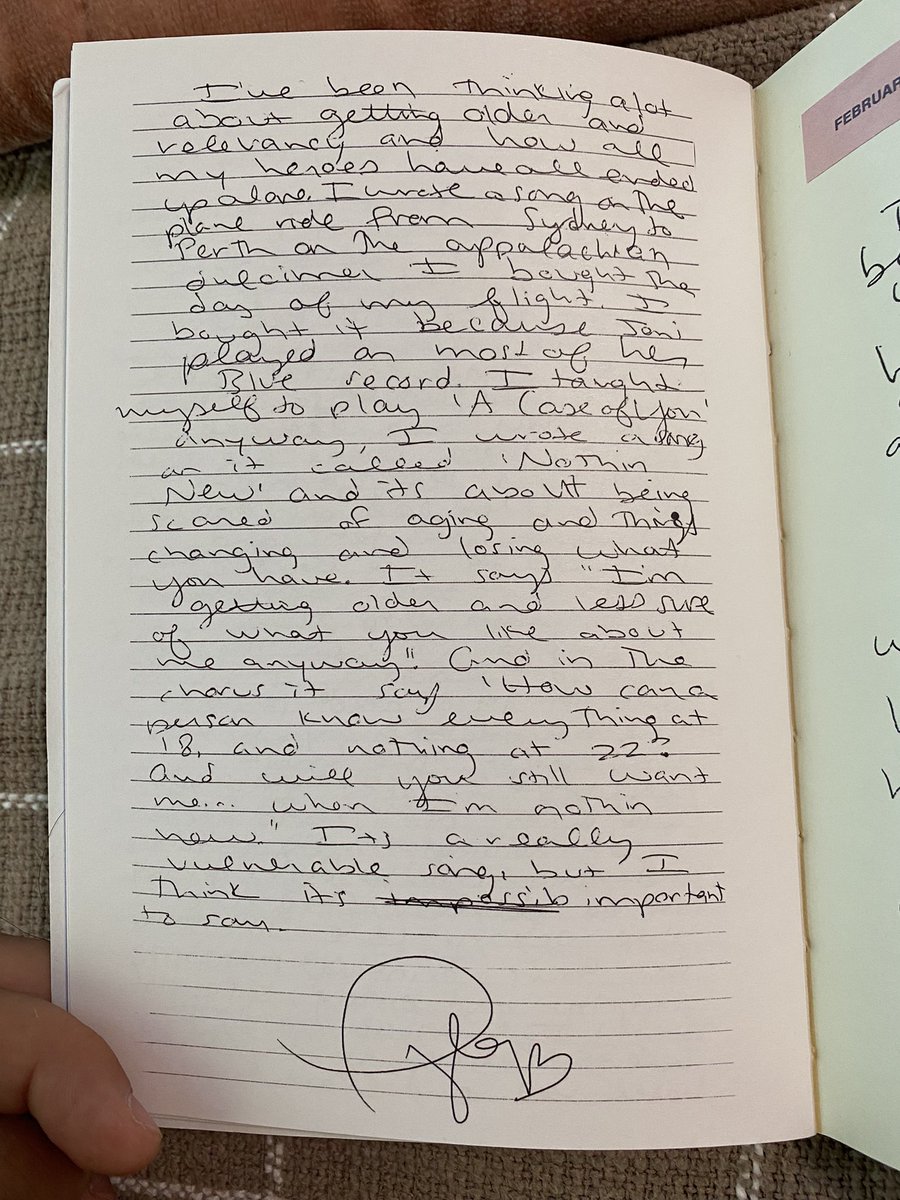 I've been thinking alot
about getting older and
relevancy and how all
my heroes have all ended
up alone. I wrote a song on the
plane ride from Sydney to
Perth on the appalachian
dulcimer I bought the
day of my flight. I
bought it because Joni
played on most of her
Blue record. I taught
myself to play 'A Case of You'
anyway, I wrote a song
on it called 'Nothin
New' and its about being
scared of aging and things
changing and losing what
you have. It says "I'm
getting older and less sure
of what you like about
me anyway". And in the
chorus it says 'How can a
person know everything at
18, and nothing at 22?
And will you still want
me... when I'm nothin
new." Its a really
vulnerable song, but I
think its impossib important
to say.
FEBRUAR